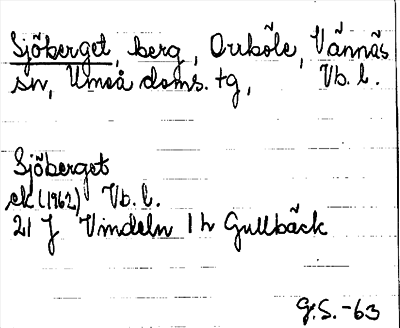 Sjöberget, berg, Orrböle, Vännäs
sn, Umeå doms. tg, Vb. l.
Sjöberget
ek (1962) Vb. l.
21 J Vindeln 1 h Gullbäck
G.S. -63